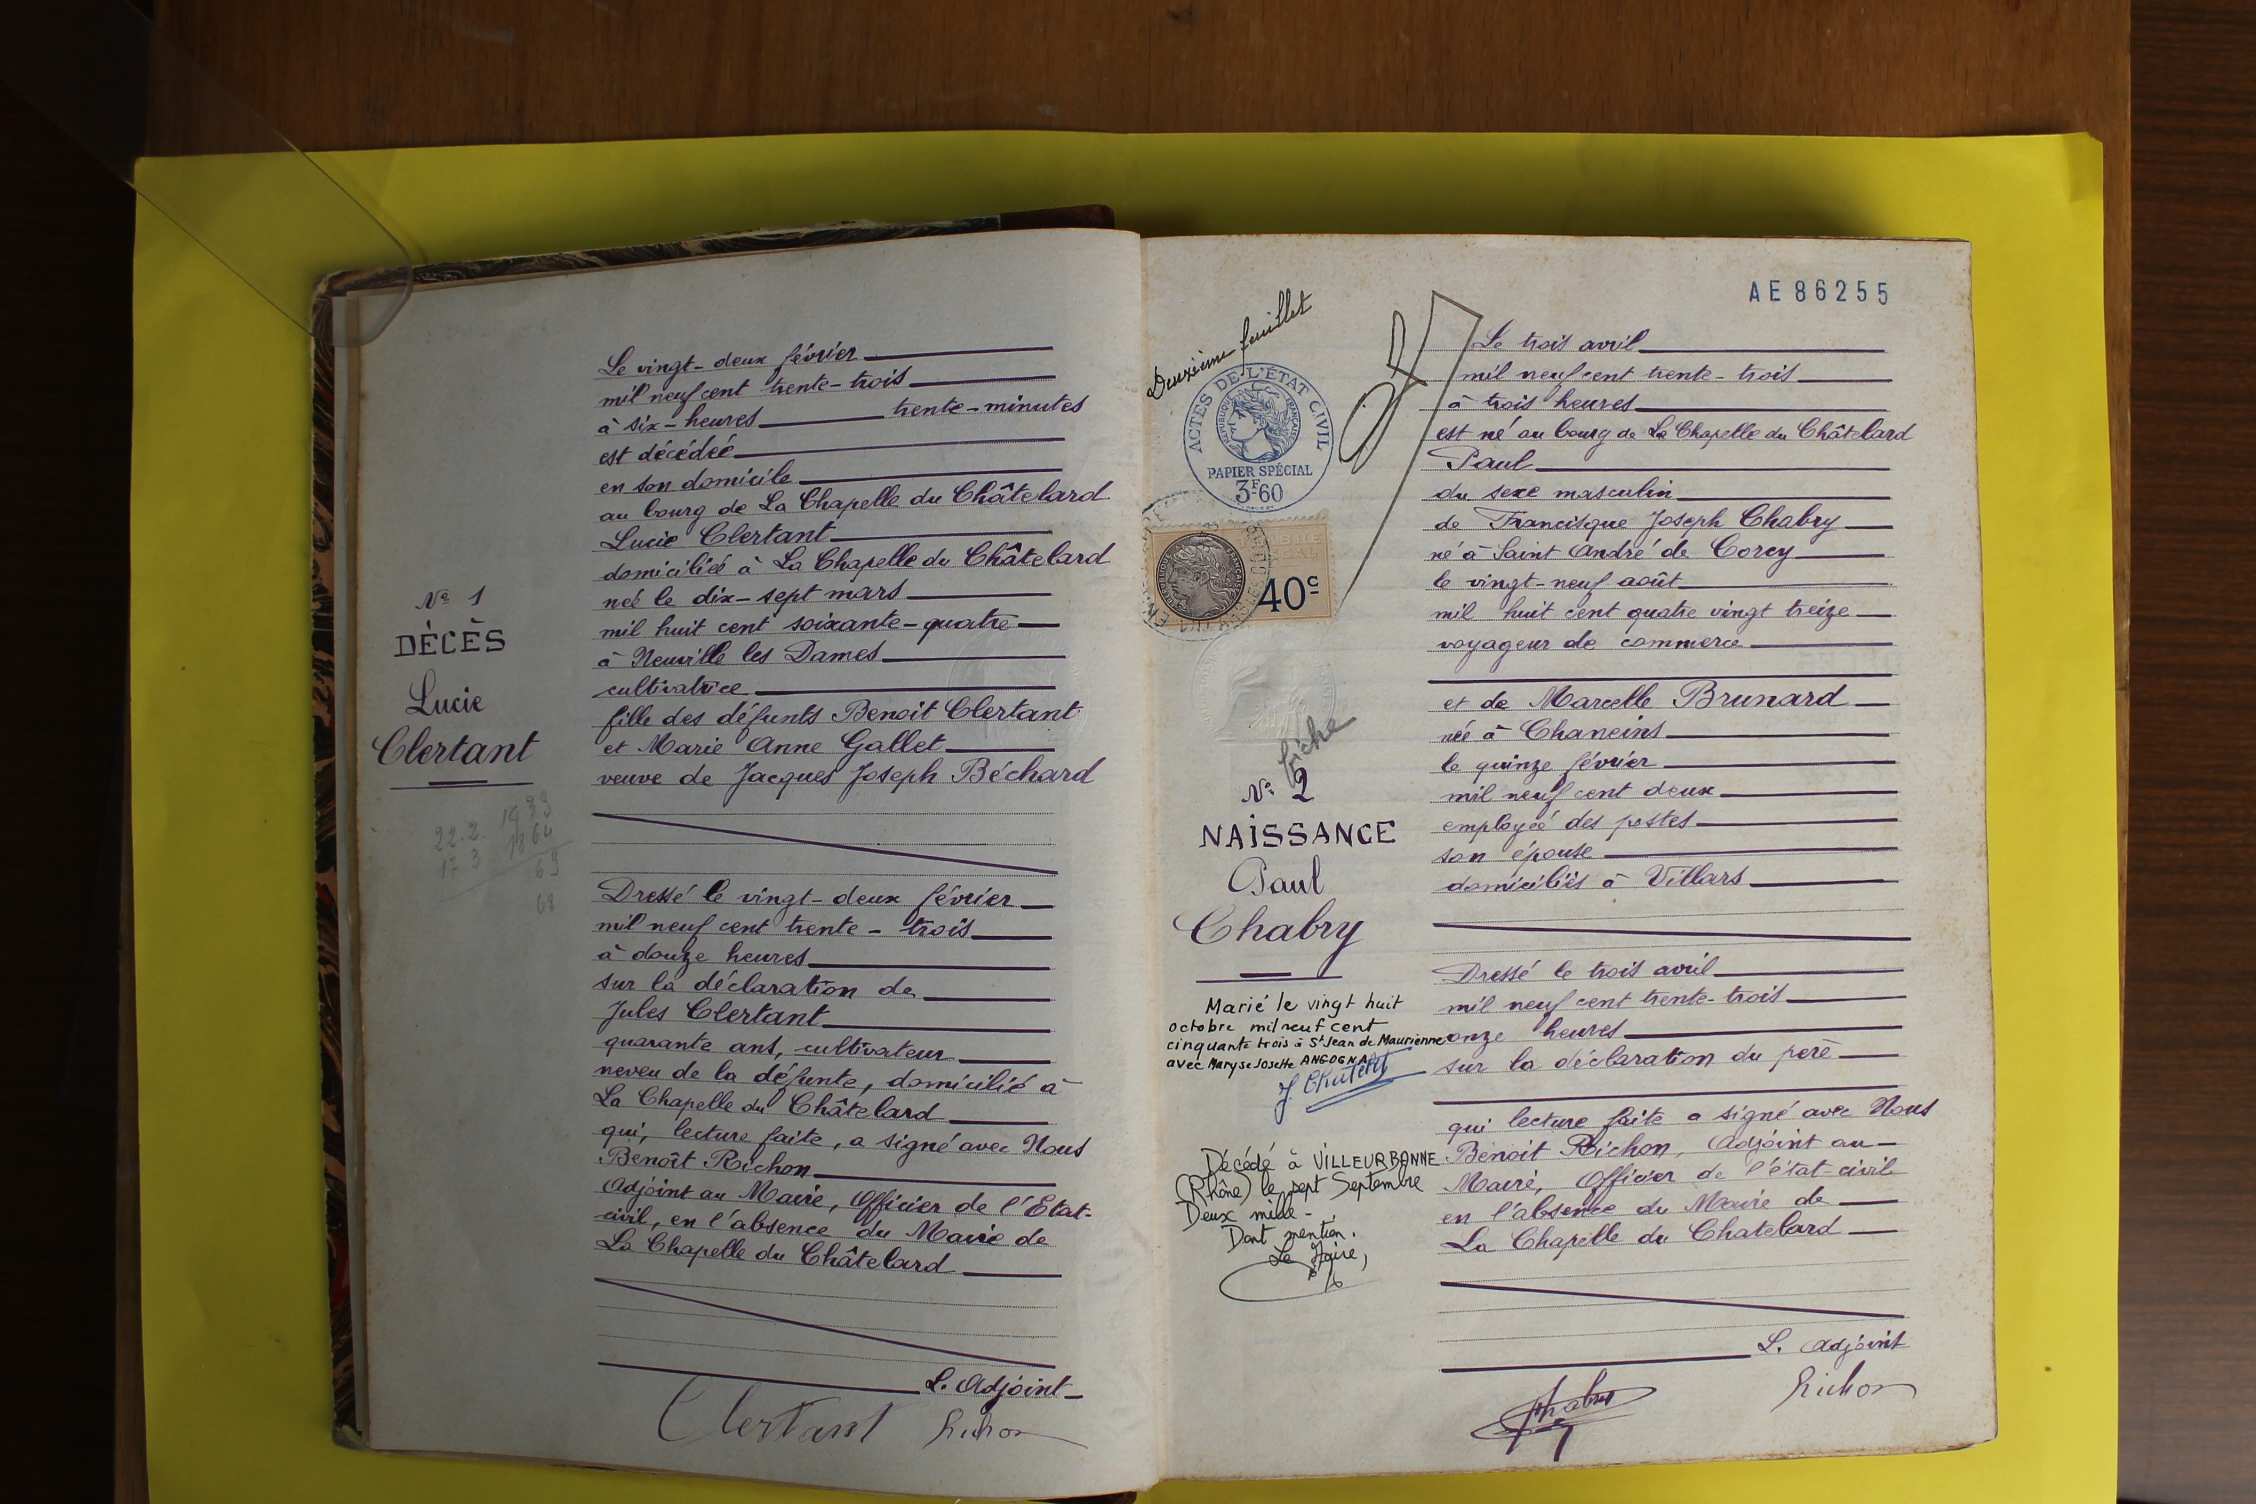 Nº 1
DÉCÈS
Lucie
Clertant
22.2. 1933
17 3 1864
69
68
Le vingt-deux février
mil neuf cent trente-trois
à six-heures trente-minutes
est décédée
en son domicile
au bourg de La Chapelle du Châtelard
Lucie Clertant
domiciliée à La Chapelle du Châtelard
née le dix-sept mars
mil huit cent soixante-quatre
à Neuville les Dames
cultivatrice
fille des défunts Benoit Clertant
et Marie Anne Gallet
veuve de Jacques Joseph Béchard
Dressé le vingt-deux février
mil neuf cent trente-trois
à douze heures
sur la déclaration de
Jules Clertant
quarante ans, cultivateur
neveu de la défunte, domicilié à
La Chapelle du Châtelard
qui, lecture faite, a signé avec Nous
Benoît Richon
Adjoint au Maire, Officier de l'Etat-
civil, en l'absence du Maire de
La Chapelle du Châtelard
L. Adjoint
Clertant Richon
AE 86255
Deuxième feuillet
ACTES DE L'ÉTAT CIVIL
RÉPUBLIQUE FRANÇAISE
PAPIER SPÉCIAL
3F60
40c
fiche
Nº 2
NAISSANCE
Paul
Chabry
Marié le vingt huit
octobre mil neuf cent
cinquante trois à St Jean de Maurienne
avec Maryse Josette ANGOGNA
Décédé à VILLEURBANNE
(Rhône) le sept Septembre
Deux mille -
Dont mention.
Le Maire,
Le trois avril
mil neuf cent trente-trois
à trois heures
est né au bourg de La Chapelle du Châtelard
Paul
du sexe masculin
de Francisque Joseph Chabry
né à Saint André de Corcy
le vingt-neuf août
mil huit cent quatre vingt treize
voyageur de commerce
et de Marcelle Brunard
née à Chaneins
le quinze février
mil neuf cent deux
employée des postes
son épouse
domiciliés à Villars
Dressé le trois avril
mil neuf cent trente-trois
onze heures
sur la déclaration du père
qui lecture faite a signé avec Nous
Benoit Richon, Adjoint au
Maire, Officier de l'état-civil
en l'absence du Maire de
La Chapelle du Chatelard
L. Adjoint
Chabry Richon